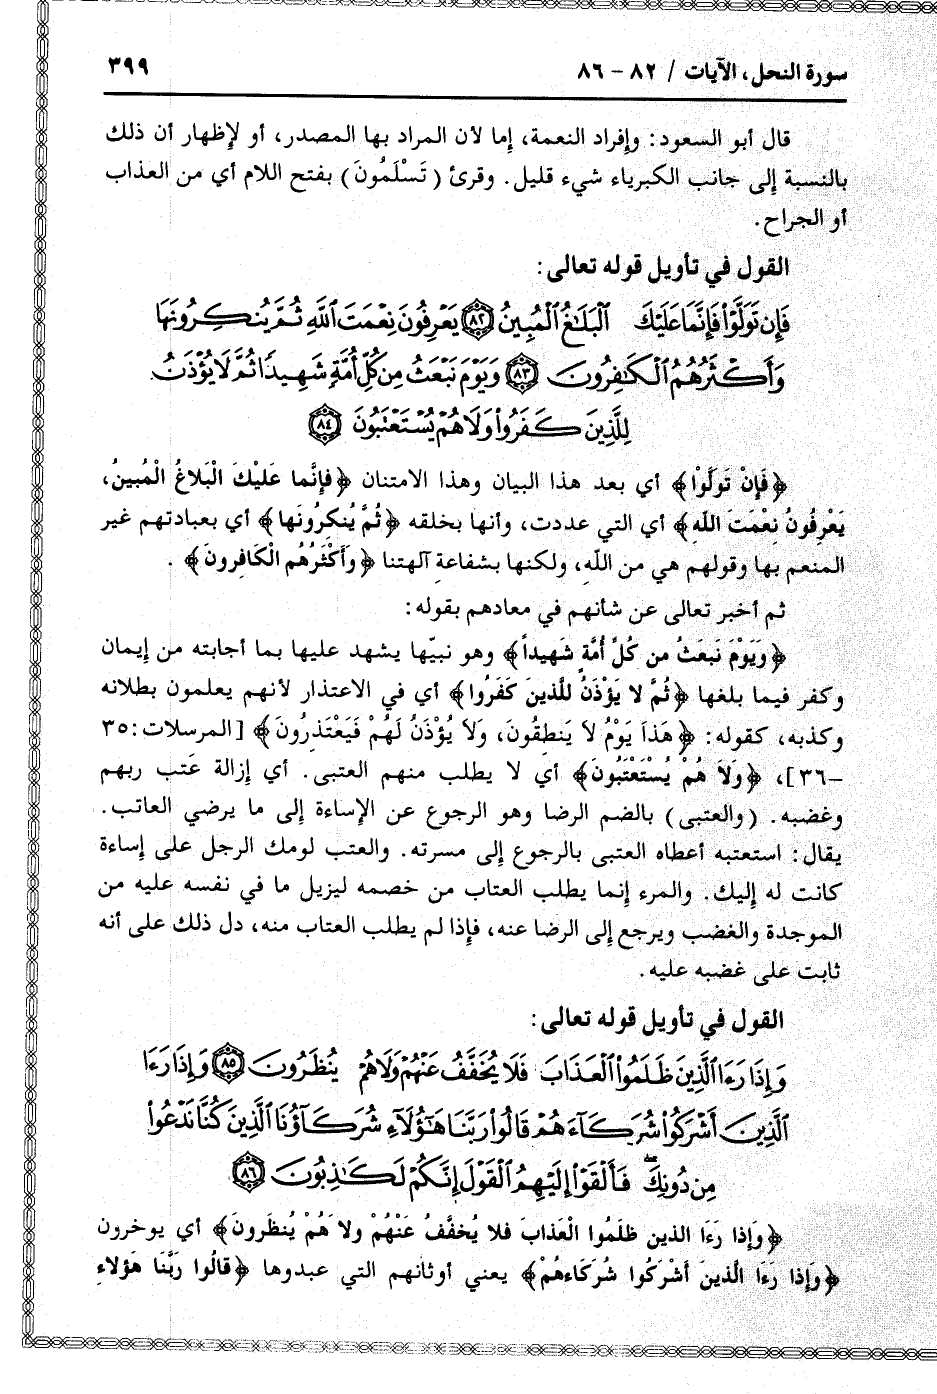 سورة النحل، الآيات / ٨٢ - ٨٦
٣٩٩
قال أبو السعود: وإفراد النعمة، إما لأن المراد بها المصدر، أو لإظهار أن ذلك
بالنسبة إلى جانب الكبرياء شيء قليل. وقرئ (تَسْلَمُونَ) بفتح اللام أي من العذاب
أو الجراح.
القول في تأويل قوله تعالى:
فَإِن تَوَلَّوْا۟ فَإِنَّمَا عَلَيْكَ ٱلْبَلَـٰغُ ٱلْمُبِينُ ﴿٨٢﴾ يَعْرِفُونَ نِعْمَتَ ٱللَّهِ ثُمَّ يُنكِرُونَهَا
وَأَكْثَرُهُمُ ٱلْكَـٰفِرُونَ ﴿٨٣﴾ وَيَوْمَ نَبْعَثُ مِن كُلِّ أُمَّةٍ شَهِيدًا ثُمَّ لَا يُؤْذَنُ
لِلَّذِينَ كَفَرُوا۟ وَلَا هُمْ يُسْتَعْتَبُونَ ﴿٨٤﴾
﴿فَإِنْ تَوَلَّوْا﴾ أي بعد هذا البيان وهذا الامتنان ﴿فَإِنَّما عَلَيْكَ الْبَلاغُ الْمُبينُ،
يَعْرِفُونُ نِعْمَتَ اللَّهِ﴾ أي التي عددت، وأنها بخلقه ﴿ثُمَّ يُنكِرُونَها﴾ أي بعبادتهم غير
المنعم بها وقولهم هي من اللَّه، ولكنها بشفاعة آلهتنا ﴿وأَكْثَرُهُم الْكَافِرونَ﴾ .
ثم أخبر تعالى عن شأنهم في معادهم بقوله:
﴿وَيَوْمَ نَبعَثُ من كُلِّ أُمَّة شَهيداً﴾ وهو نبيّها يشهد عليها بما أجابته من إيمان
وكفر فيما بلغها ﴿ثُمَّ لا يَؤْذَنُ للَّذينَ كَفَرُوا﴾ أي في الاعتذار لأنهم يعلمون بطلانه
وكذبه، كقوله: ﴿هَذَا يَوْمُ لاَ يَنطِقُونَ، ولَا يُؤْذَنُ لَهُمْ فَيَعْتَذِرُونَ﴾ [المرسلات:٣٥
-٣٦]، ﴿ولاَ هُمْ يُسْتَعْتَبُونَ﴾ أي لا يطلب منهم العتبى. أي إزالة عَتب ربهم
وغضبه. (والعتبى) بالضم الرضا وهو الرجوع عن الإساءة إلى ما يرضي العاتب.
يقال: استعتبه أعطاه العتبى بالرجوع إلى مسرته. والعتب لومك الرجل على إساءة
كانت له إليك. والمرء إنما يطلب العتاب من خصمه ليزيل ما في نفسه عليه من
الموجدة والغضب ويرجع إلى الرضا عنه، فإذا لم يطلب العتاب منه، دل ذلك على أنه
ثابت على غضبه عليه.
القول في تأويل قوله تعالى:
وَإِذَا رَءَا ٱلَّذِينَ ظَلَمُوا۟ ٱلْعَذَابَ فَلَا يُخَفَّفُ عَنْهُمْ وَلَا هُمْ يُنظَرُونَ ﴿٨٥﴾ وَإِذَا رَءَا
ٱلَّذِينَ أَشْرَكُوا۟ شُرَكَآءَهُمْ قَالُوا۟ رَبَّنَا هَـٰٓؤُلَآءِ شُرَكَآؤُنَا ٱلَّذِينَ كُنَّا نَدْعُوا۟
مِن دُونِكَ ۖ فَأَلْقَوْا۟ إِلَيْهِمُ ٱلْقَوْلَ إِنَّكُمْ لَكَـٰذِبُونَ ﴿٨٦﴾
﴿وَإِذا رَءَا الذين ظلَمُوا الْعَذابَ فلا يُخفَّفُ عَنْهُمْ ولا هُمْ يُنظَرونَ﴾ أي يوخرون
﴿وَإِذا رَءَا الَّذينَ أَشْرَكُوا شُرَكَاءهُمْ﴾ يعني أوثانهم التي عبدوها ﴿قالُوا رَبَّنا هَؤلاءِ